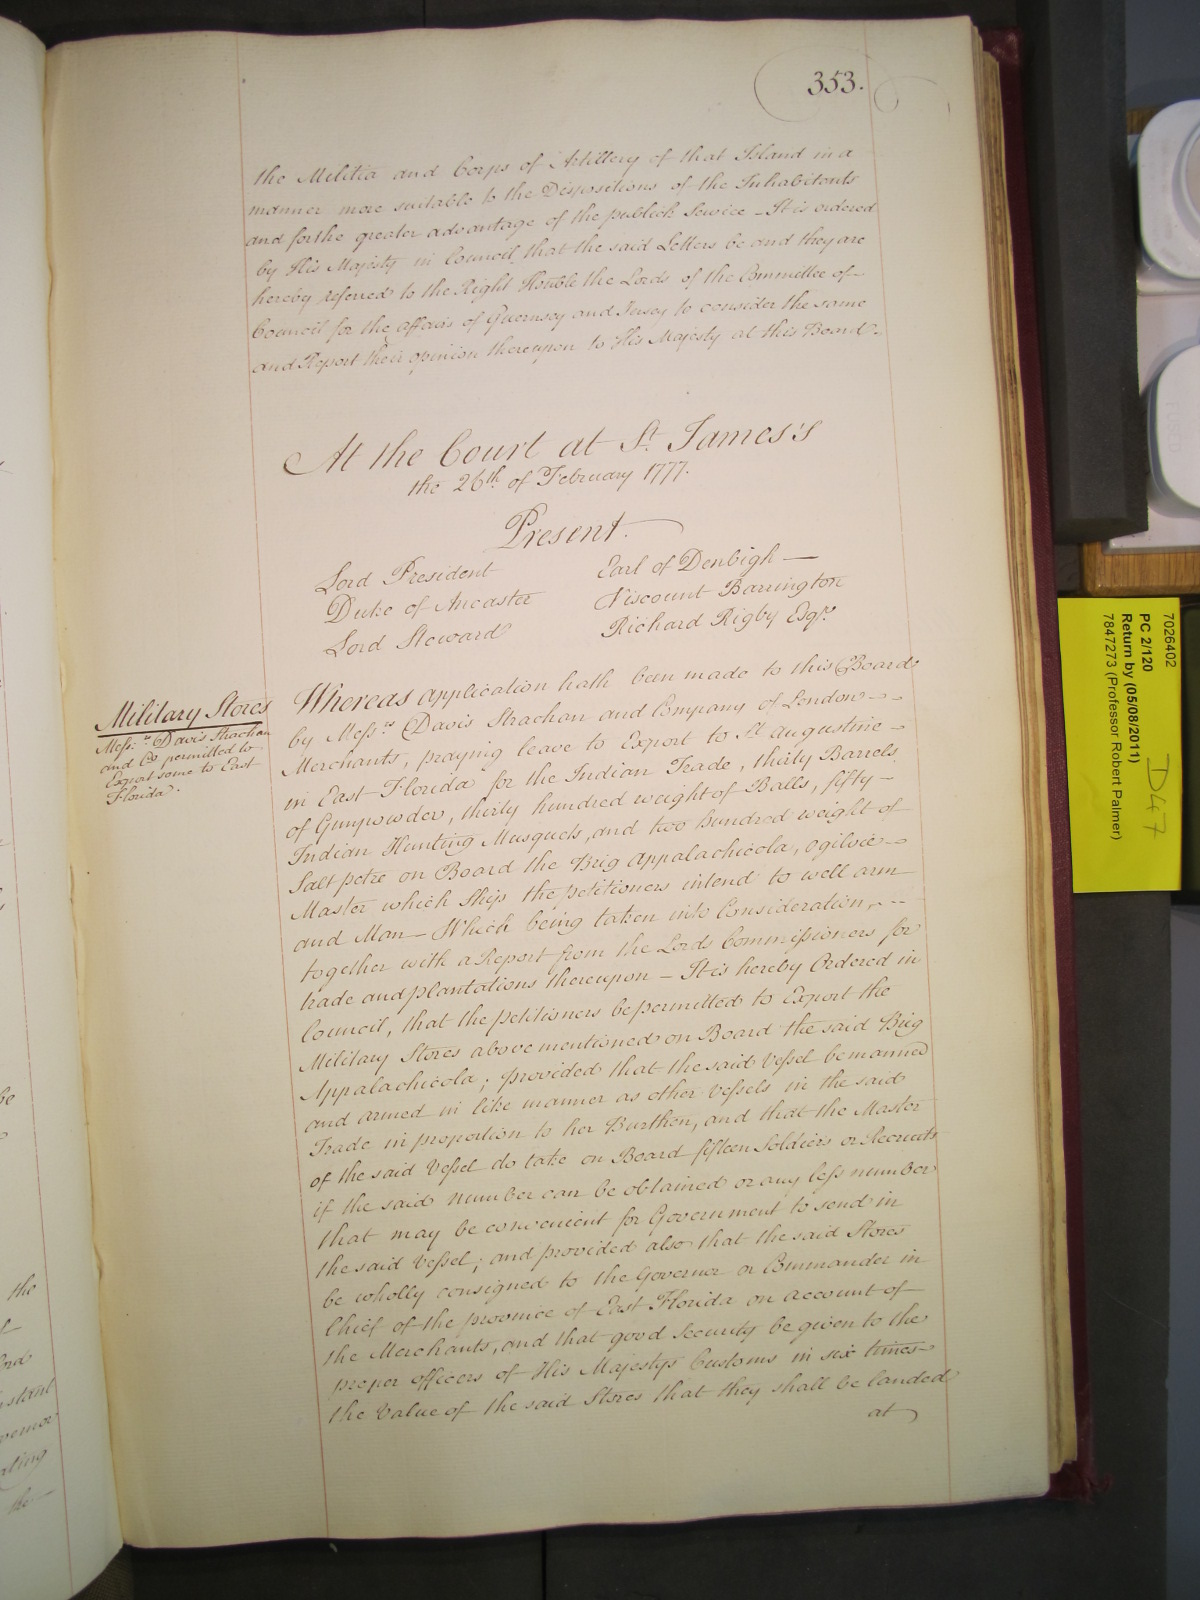 353.
the Militia and Corps of Artillery of that Island in a
manner more suitable to the Dispositions of the Inhabitants
and for the greater advantage of the publick Service - It is ordered
by His Majesty in Council, that the said Letters be and they are
hereby referred to the Right Honble the Lords of the Committee of
Council for the affairs of Guernsey and Jersey to consider the same
and Report their opinion thereupon to His Majesty at this Board.
At the Court at St. James's
the 26th of February 1777.
Present.
Lord President
Duke of Ancaster
Lord Steward
Earl of Denbigh
Viscount Barrington
Richard Rigby Esqr.
Military Stores
Messrs. Davis Strachan
and Co. permitted to
Export some to East
Florida.
Whereas application hath been made to this Board
by Messrs. Davis Strachan and Company of London
Merchants, praying leave to Export to St Augustine
in East Florida for the Indian Trade, thirty Barrels
of Gunpowder, thirty hundred weight of Balls, fifty
Indian Hunting Musquets, and two hundred weight of
Salt petre on Board the Brig Appalachicola, Ogilvie
Master which Ship the petitioners intend to well arm
and Man - Which being taken into Consideration,
together with a Report from the Lords Commissioners for
trade and plantations thereupon - It is hereby Ordered in
Council, that the petitioners be permitted to Export the
Military Stores abovementioned on Board the said Brig
Appalachicola; provided that the said Vessel be manned
and armed in like manner as other Vessels in the said
Trade in proportion to her Burthen, and that the Master
of the said Vessel do take on Board fifteen Soldiers or Recruits
if the said number can be obtained or any less number
that may be convenient for Government to send in
the said Vessel; and provided also that the said Stores
be wholly consigned to the Governor or Commander in
Chief of the province of East Florida on account of
the Merchants, and that good Security be given to the
proper officers of His Majestys Customs in six times
the Value of the said Stores that they shall be landed
at
7026402
PC 2/120
Return by (05/08/2011)
7847273 (Professor Robert Palmer)
D47
be
the
stant